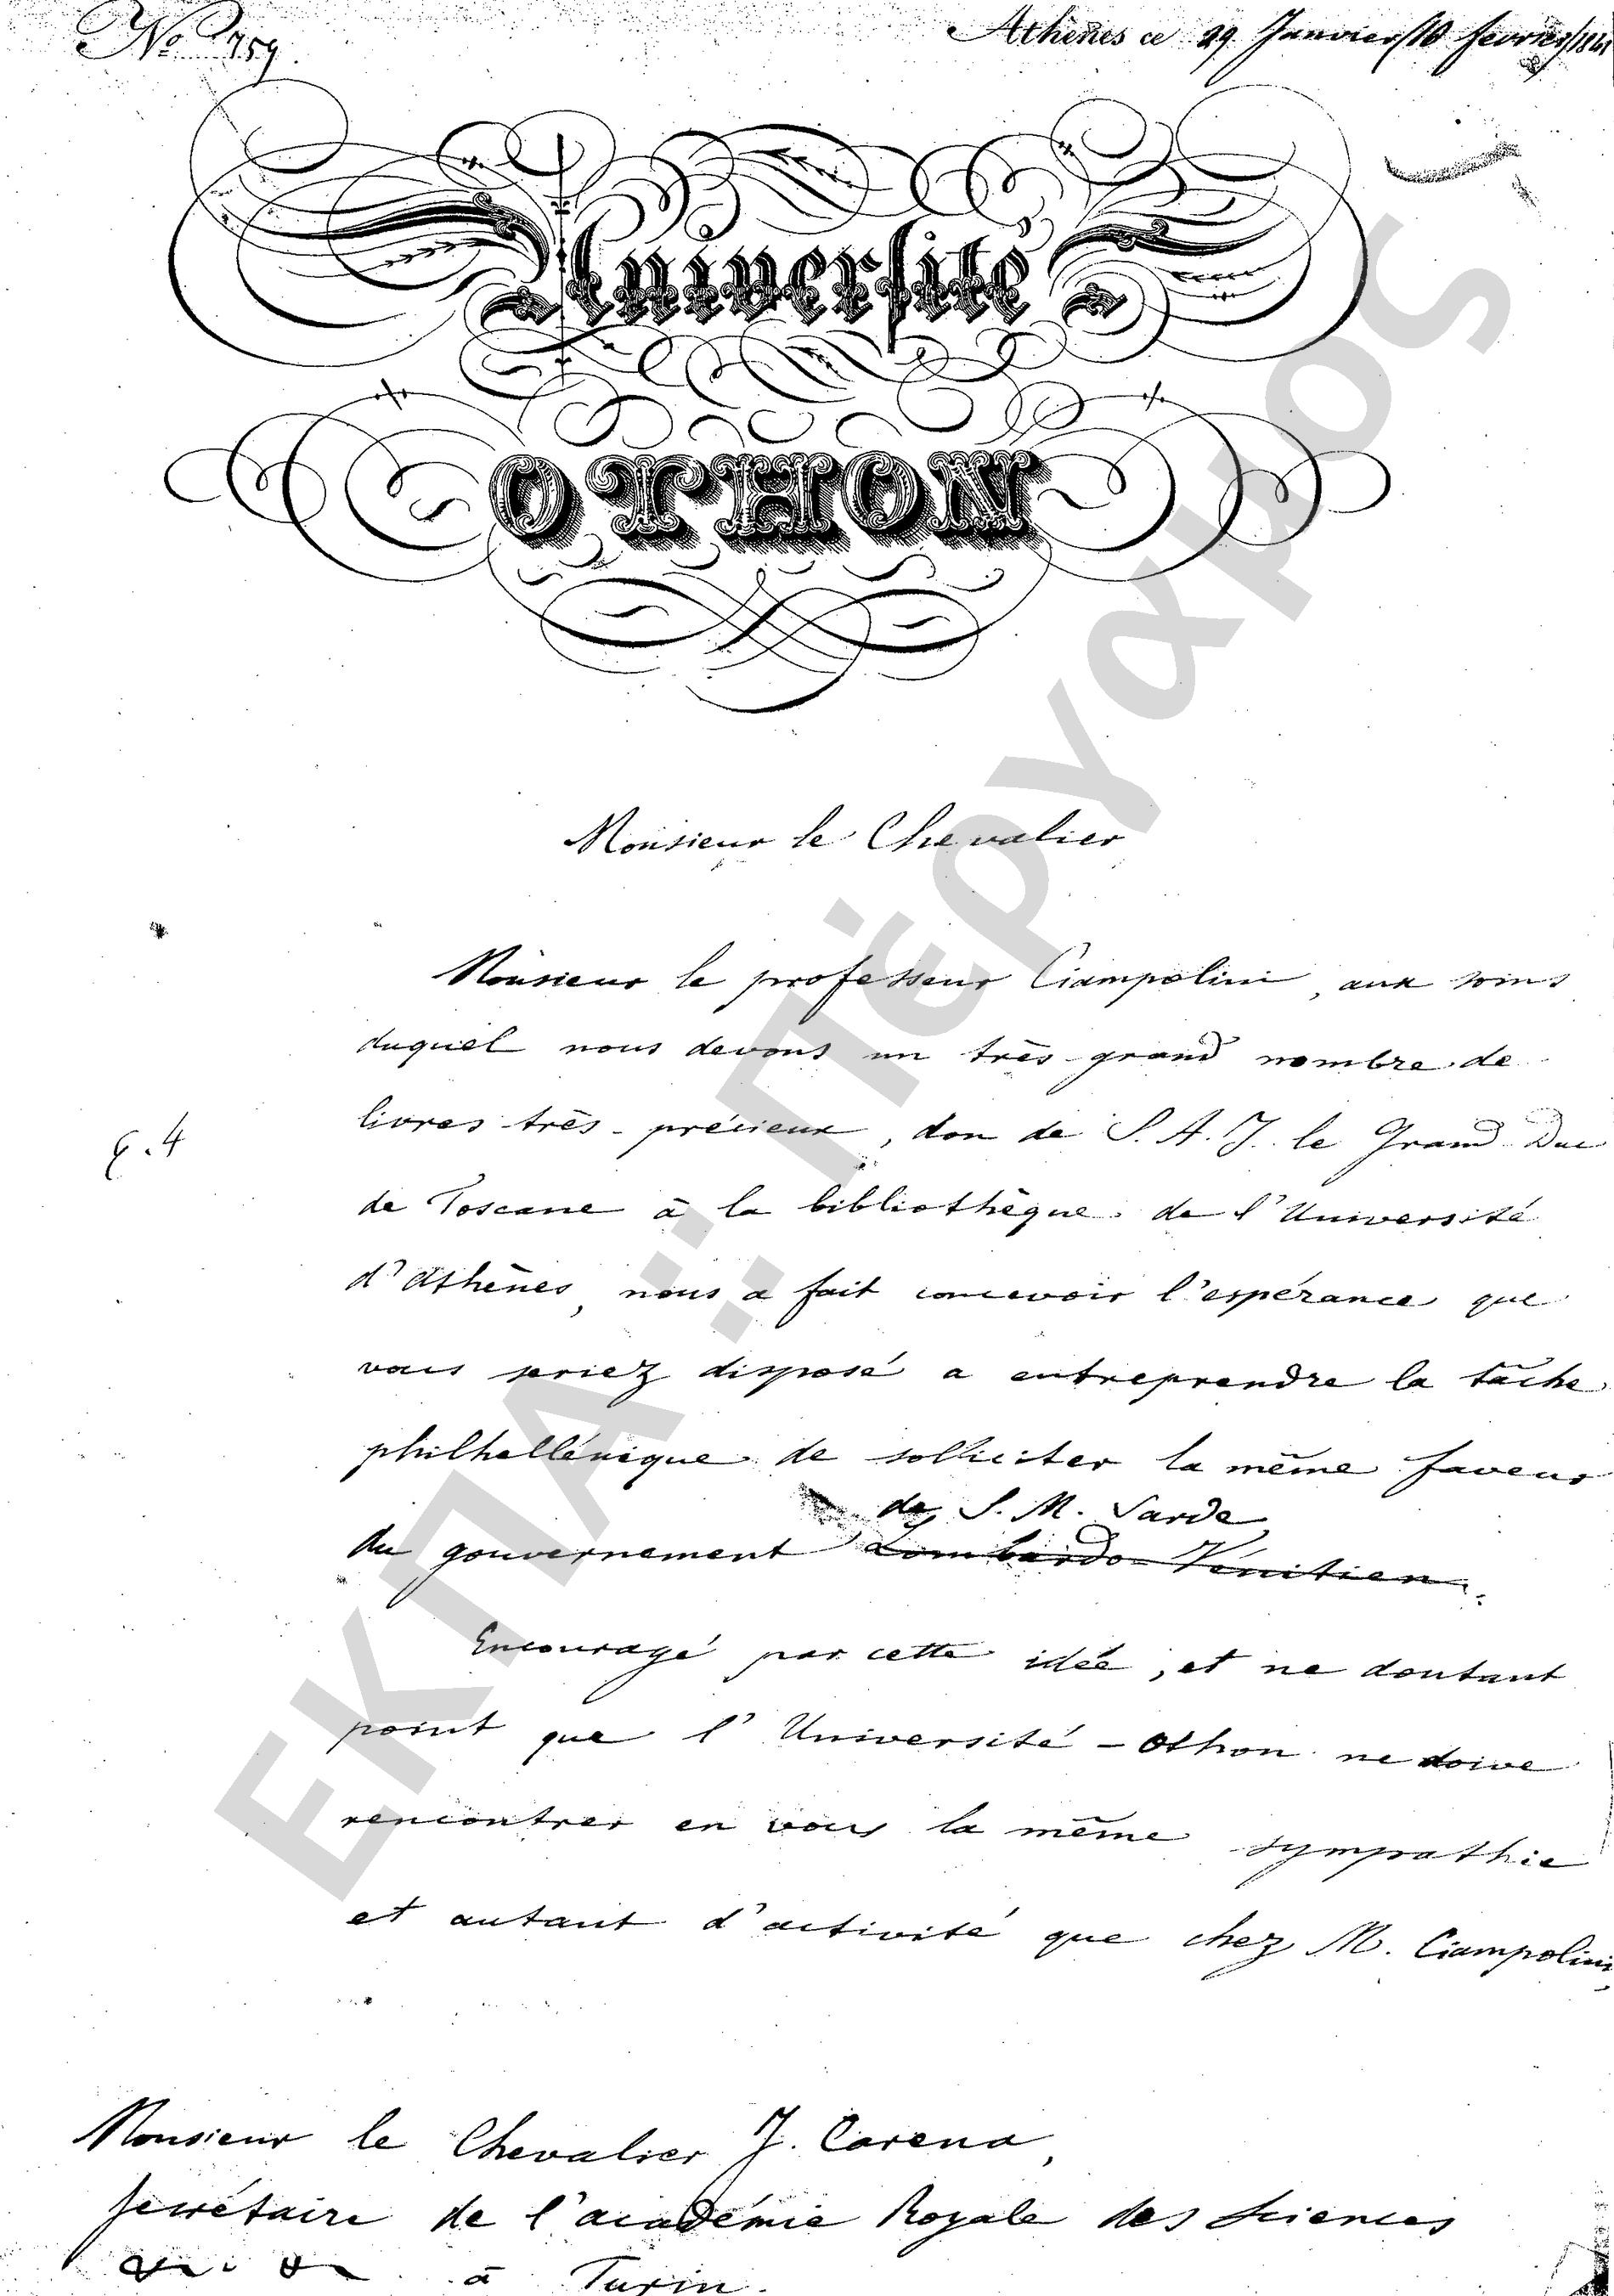 No 759.
Athènes ce 29 Janvier/10 février/184
Université
OTHON
Monsieur le Chevalier
Monsieur le professeur Ciampolini, aux soins
duquel nous devons un très grand nombre de
livres très-précieux, don de S. A. J. le Grand Duc
de Toscane à la bibliothèque de l'Université
d'Athènes, nous a fait concevoir l'espérance que
vous seriez disposé a entreprendre la tâche
philhellénique de solliciter la même faveur
de S. M. Sarde
du gouvernement Lombardo Vénitien.
Encouragé par cette idée, et ne doutant
point que l'Université-Othon ne doive
rencontrer en vous la même sympathie
et autant d'activité que chez M. Ciampolini
Monsieur le Chevalier J. Carena,
secrétaire de l'académie Royale des Sciences
à Turin.
ΕΚΠΑ::Πέργαμος